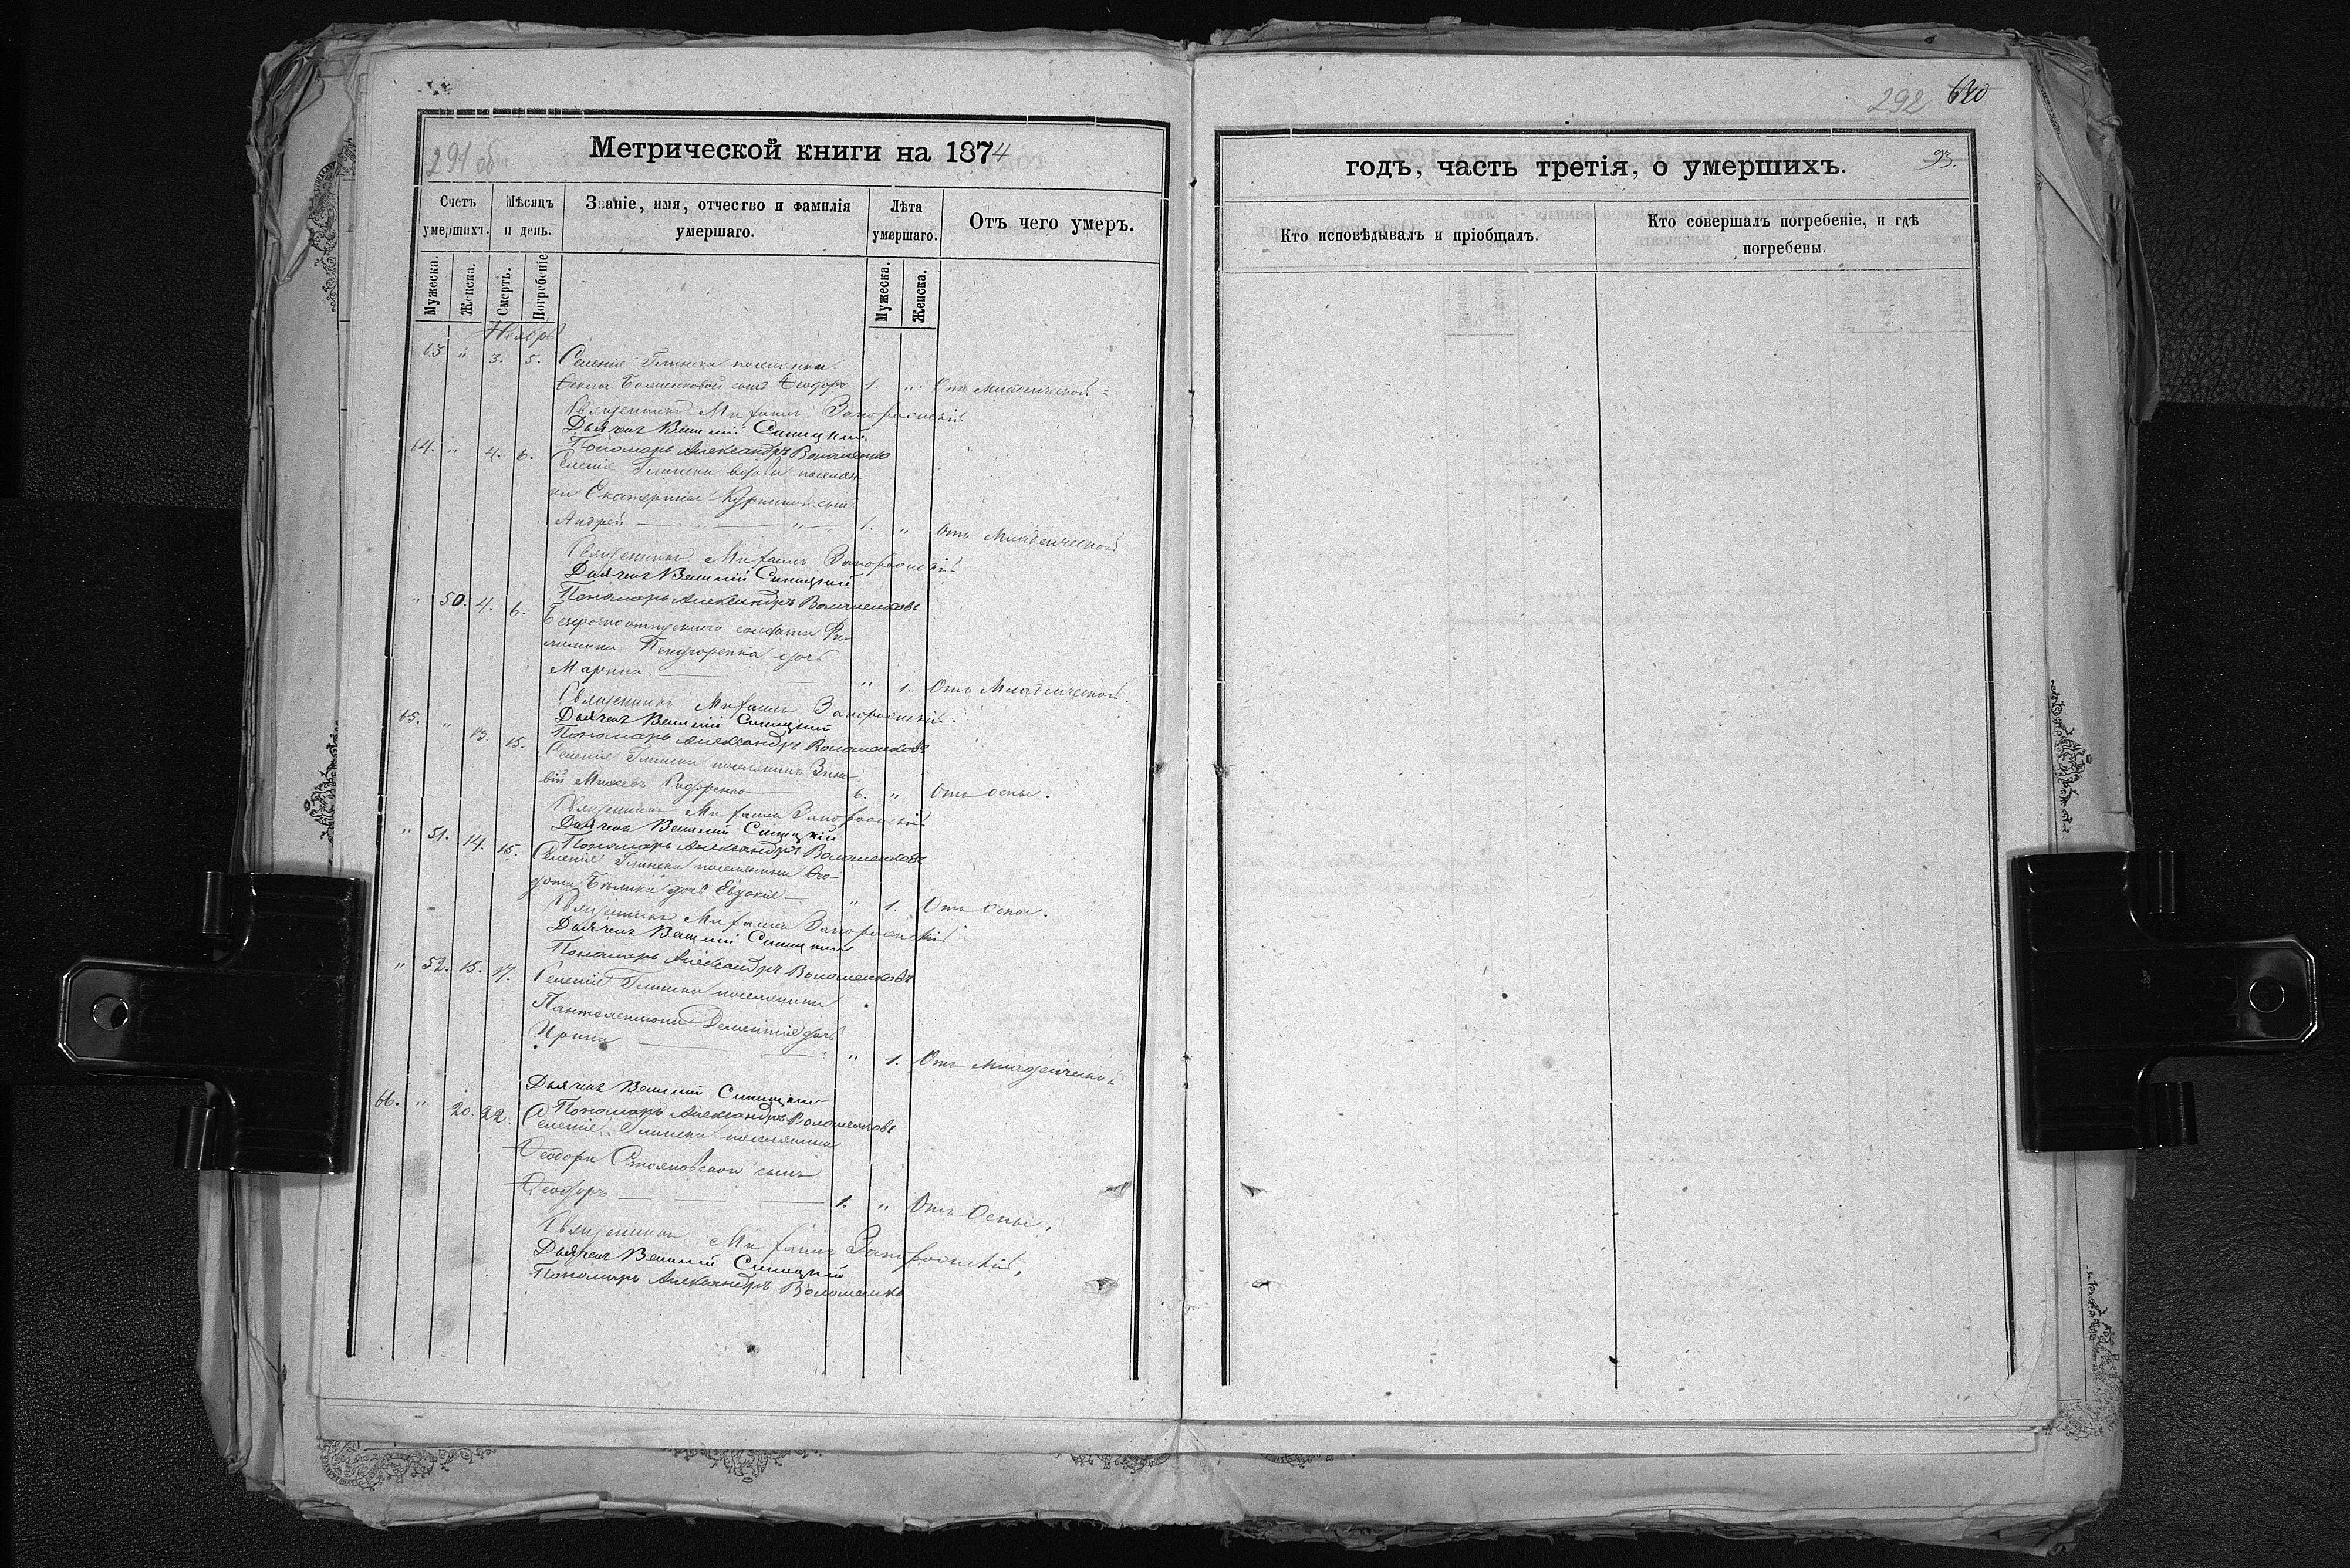 291 об
Метрической книги на 1874
Счетъ умершихъ.
Мѣсяцъ и день.
Званіе, имя, отчество и фамилія умершаго.
Лѣта умершаго.
Отъ чего умеръ.
Мужеска.
Женска.
Смерть.
Погребеніе
Мужеска.
Женска.
Ноябрь
63 " 3. 5. Селенія Глинска поселянки
Феклы сынъ Ѳеодоръ 1. " Отъ младенческой
Священникъ Михаилъ
Дьячекъ Василій Синицкій
Пономарь Александръ Волошенко
64. " 4. 6. Селенія Глинска вдовы поселян-
ки Екатерины сынъ
Андрей 1. " Отъ младенческой
Священникъ Михаилъ
Дьячекъ Василій Синицкій
Пономарь Александръ Волошенковъ
" 50. 4. 6. Безсрочноотпускного солдата Фи-
лимона дочь
Марина " 1. Отъ младенческой
Священникъ Михаилъ
Дьячекъ Василій Синицкій
Пономарь Александръ Волошенковъ
65. " 13. 15. Селенія Глинска поселянинъ Зино-
вій 6. " Отъ оспы.
Священникъ Михаилъ
Дьячекъ Василій Синицкій
Пономарь Александръ Волошенковъ
" 51. 14. 15. Селенія Глинска поселянина Ѳео-
дота дочь Евдокія " 1. Отъ оспы.
Священникъ Михаилъ
Дьячекъ Василій Синицкій
Пономарь Александръ Волошенковъ
" 52. 15. 17. Селенія Глинска поселянина
Пантелеимона дочь
Ирина " 1. Отъ младенческой
Дьячекъ Василій Синицкій
Пономарь Александръ Волошенковъ
66. " 20. 22. Селенія Глинска поселянина
Ѳеодора сынъ
Ѳеодоръ 1. " Отъ Оспы.
Священникъ Михаилъ
Дьячекъ Василій Синицкій
Пономарь Александръ Волошенко
292 620
годъ, часть третія, о умершихъ.
93.
Кто исповѣдывалъ и пріобщалъ.
Кто совершалъ погребеніе, и гдѣ погребены.